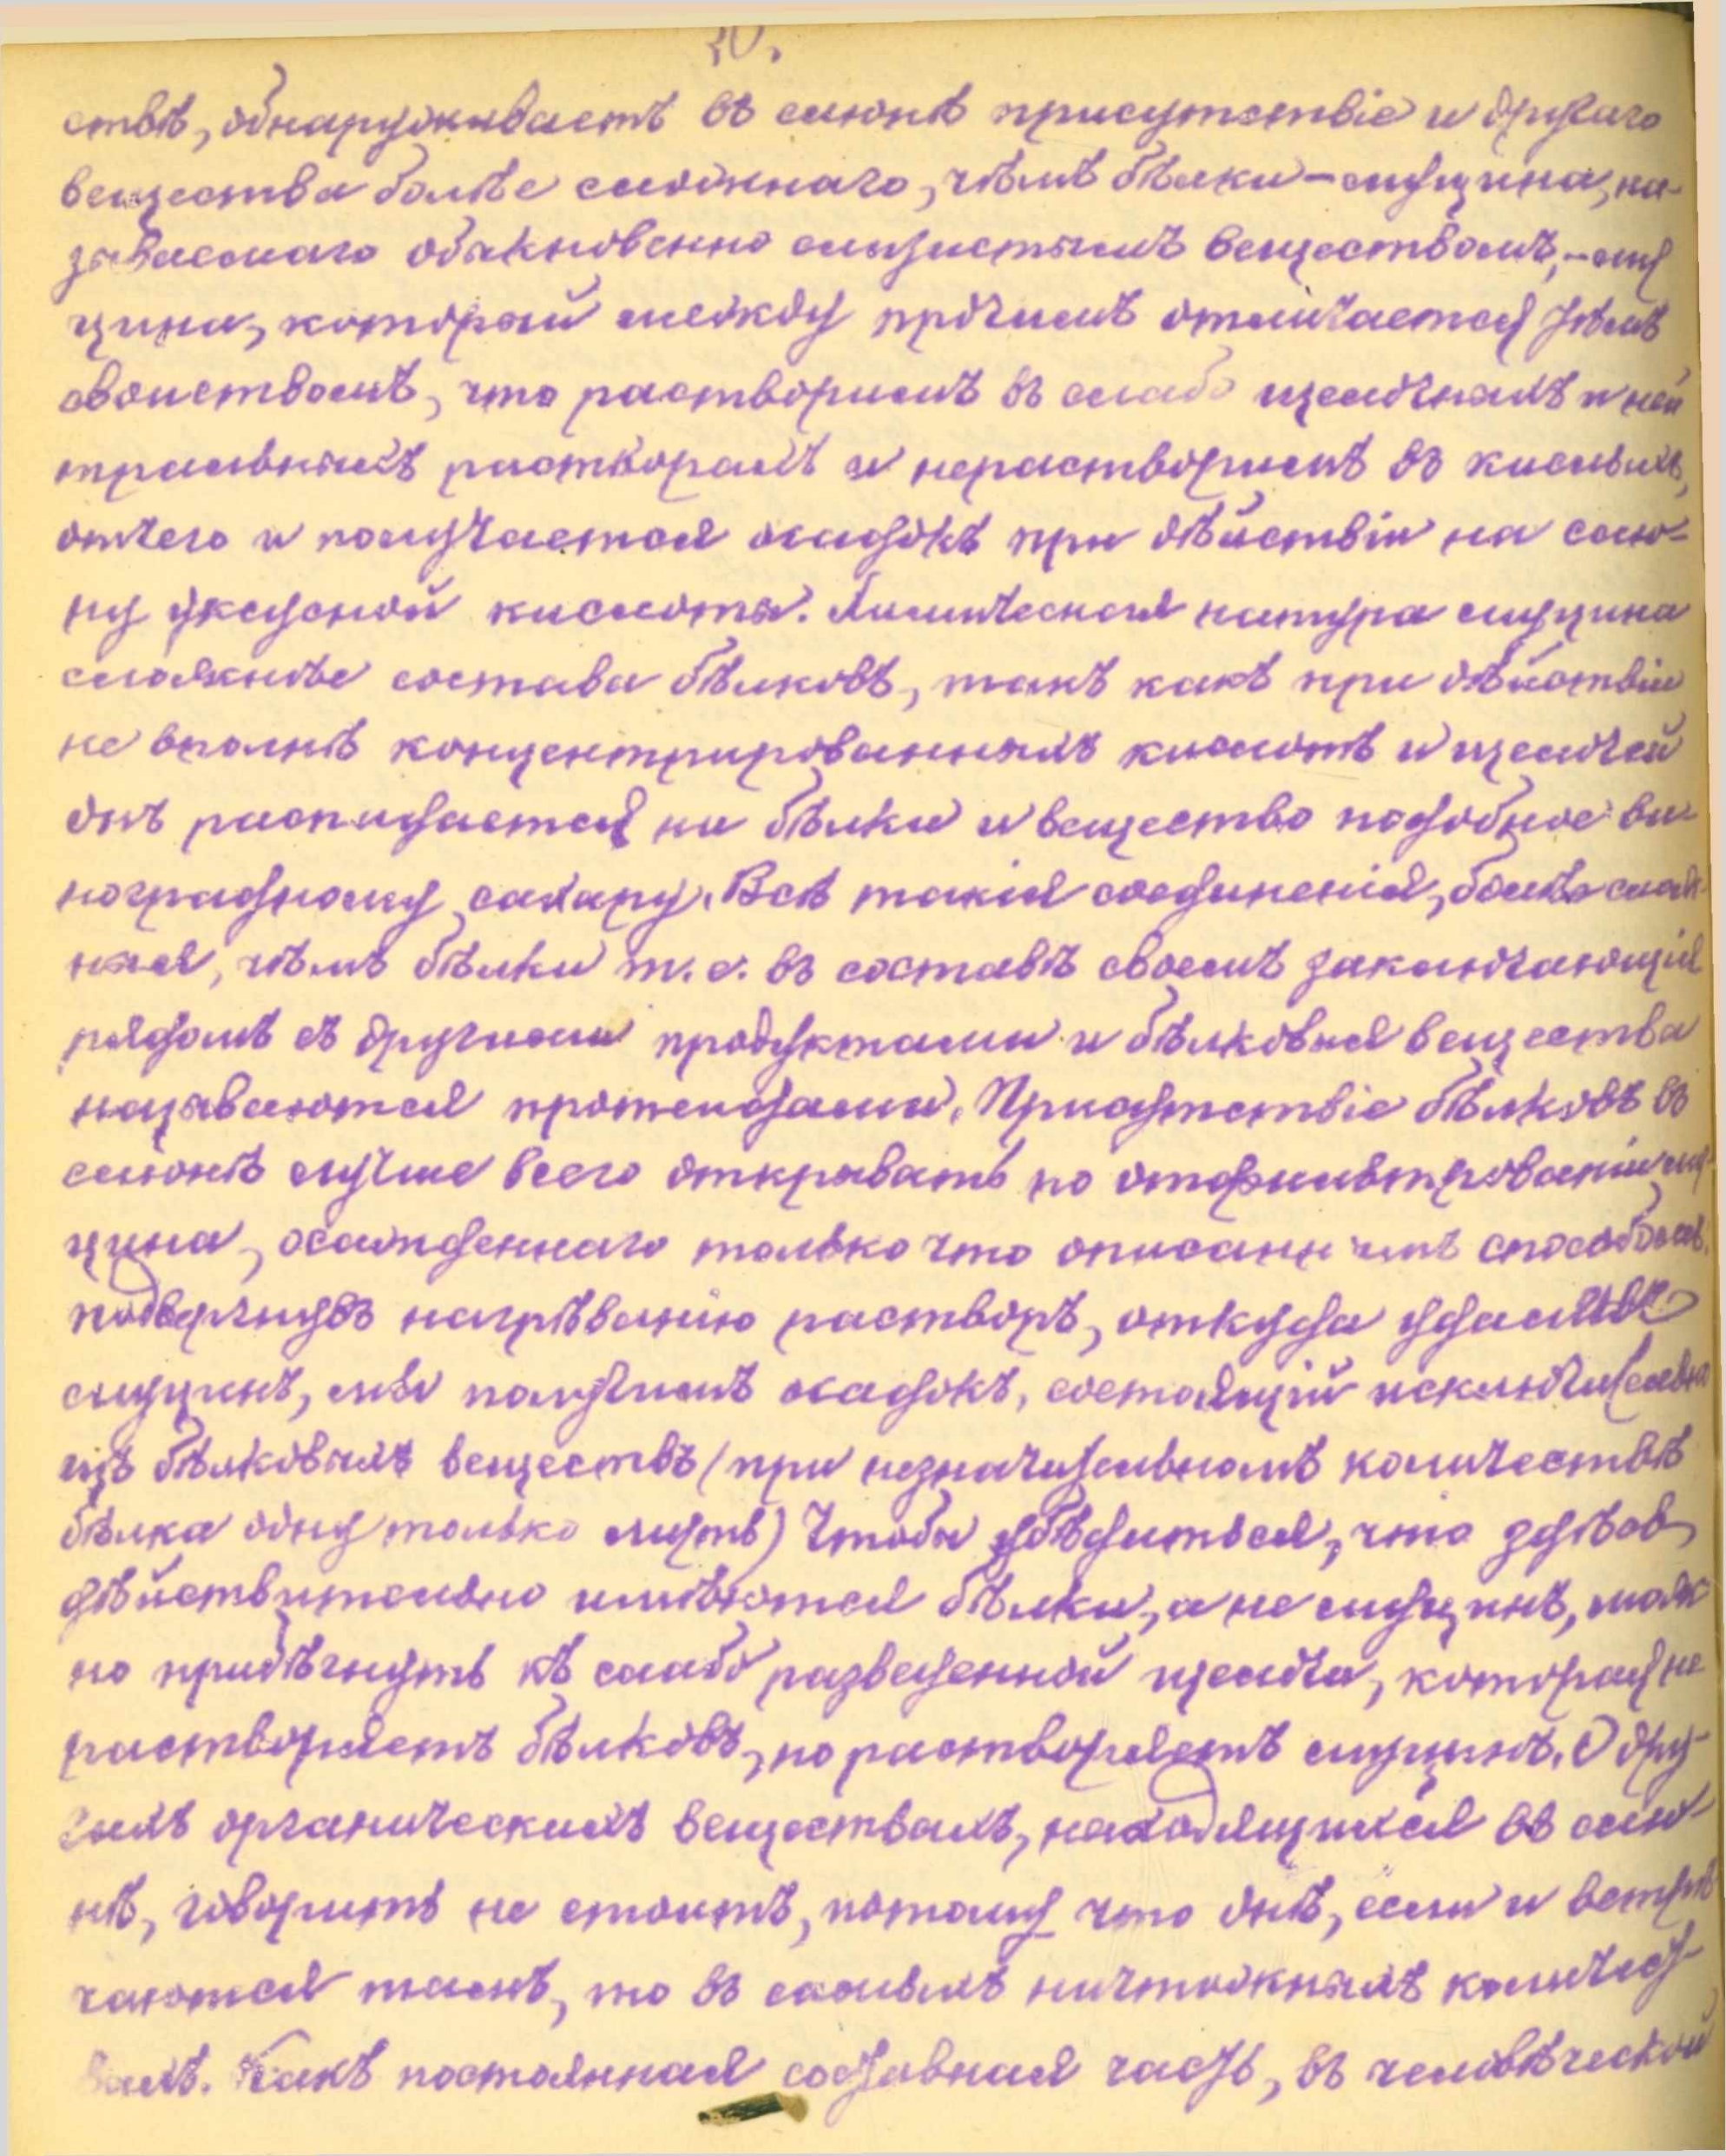 30.
ствѣ, обнаруживаетъ въ слюнѣ присутствіе и другаго
вещества болѣе сложнаго, чѣмъ бѣлки – муцина, на-
зываемаго обыкновенно слизистымъ веществомъ, – му
цина, который между прочимъ отличается тѣмъ
свойствомъ, что растворимъ въ слабо щелочныхъ и ней
тральныхъ растворахъ и нерастворимъ въ кислыхъ,
отчего и получается осадокъ при дѣйствіи на слю-
ну уксусной кислоты. Химическая натура муцина
сложнѣе состава бѣлковъ, такъ какъ при дѣйствіи
не вполнѣ концентрированныхъ кислотъ и щелочей
онъ распадается на бѣлки и вещество подобное ви-
ноградному сахару. Всѣ такія соединенія, болѣе слож-
ныя, чѣмъ бѣлки т. е. въ составѣ своемъ заключающія
рядомъ съ другими продуктами и бѣлковыя вещества
называются протеидами. Присутствіе бѣлковъ въ
слюнѣ лучше всего открывать по отфильтрованіи му-
цина, осажденнаго только что описаннымъ способомъ.
подвергнувъ нагрѣванію растворъ, откуда удаленъ
муцинъ, мы получимъ осадокъ, состоящій исключительно
изъ бѣлковыхъ веществъ (при незначительномъ количествѣ
бѣлка одну только муть) Чтобы убѣдиться, что здѣсь
дѣйствительно имѣются бѣлки, а не муцинъ, мож
но прибѣгнуть къ слабо разведенной щелочи, которая не
растворяетъ бѣлковъ, но растворяетъ муцинъ. О дру-
гихъ органическихъ веществахъ, находящихся въ слю-
нѣ, говорить не стоитъ, потому что онѣ, если и встрѣ
чаются тамъ, то въ самыхъ ничтожныхъ количест-
вахъ. Какъ постоянная составная часть, въ человѣческой